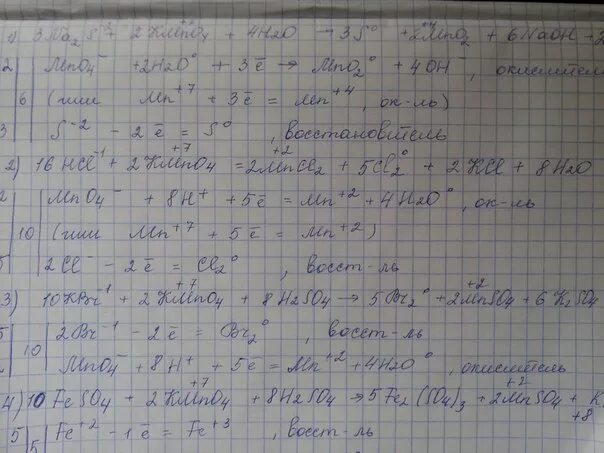 1) 3Na2S⁻² + 2KMnO4⁺⁷ + 4H2O → 3S⁰ + 2MnO2⁺⁴ + 6NaOH + 2
2 | MnO4⁻ + 2H2O⁰ + 3ē → MnO2⁰ + 4OH⁻, окислитель
6 | (или Mn⁺⁷ + 3ē = Mn⁺⁴, ок-ль)
3 | S⁻² - 2ē = S⁰, восстановитель
2) 16HCl⁻¹ + 2KMnO4⁺⁷ = 2MnCl2⁺² + 5Cl2⁰ + 2KCl + 8H2O
2 | MnO4⁻ + 8H⁺ + 5ē = Mn⁺² + 4H2O⁰, ок-ль
10 | (или Mn⁺⁷ + 5ē = Mn⁺²)
5 | 2Cl⁻ - 2ē = Cl2⁰, восст-ль
3) 10KBr⁻¹ + 2KMnO4⁺⁷ + 8H2SO4 → 5Br2⁰ + 2MnSO4⁺² + 6K2SO4
5 | 2Br⁻¹ - 2ē = Br2⁰, восст-ль
10 | MnO4⁻ + 8H⁺ + 5ē = Mn⁺² + 4H2O⁰, окислитель
4) 10FeSO4 + 2KMnO4⁺⁷ + 8H2SO4 → 5Fe2(SO4)3 + 2MnSO4⁺² + K
+8
5 | 5 | Fe⁺² - 1ē = Fe⁺³, восст-ль